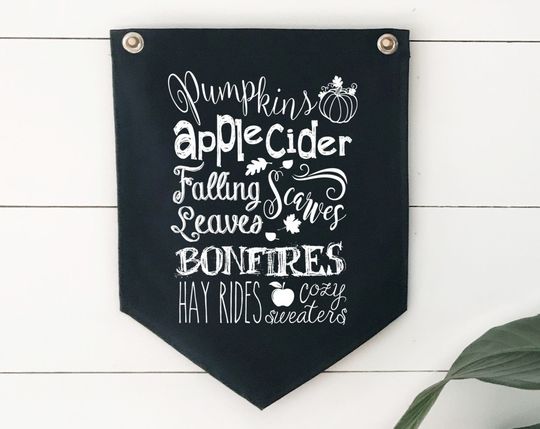 Pumpkins
apple cider
Falling
Leaves
Scarves
BONFIRES
HAY RIDES
cozy
sweaters